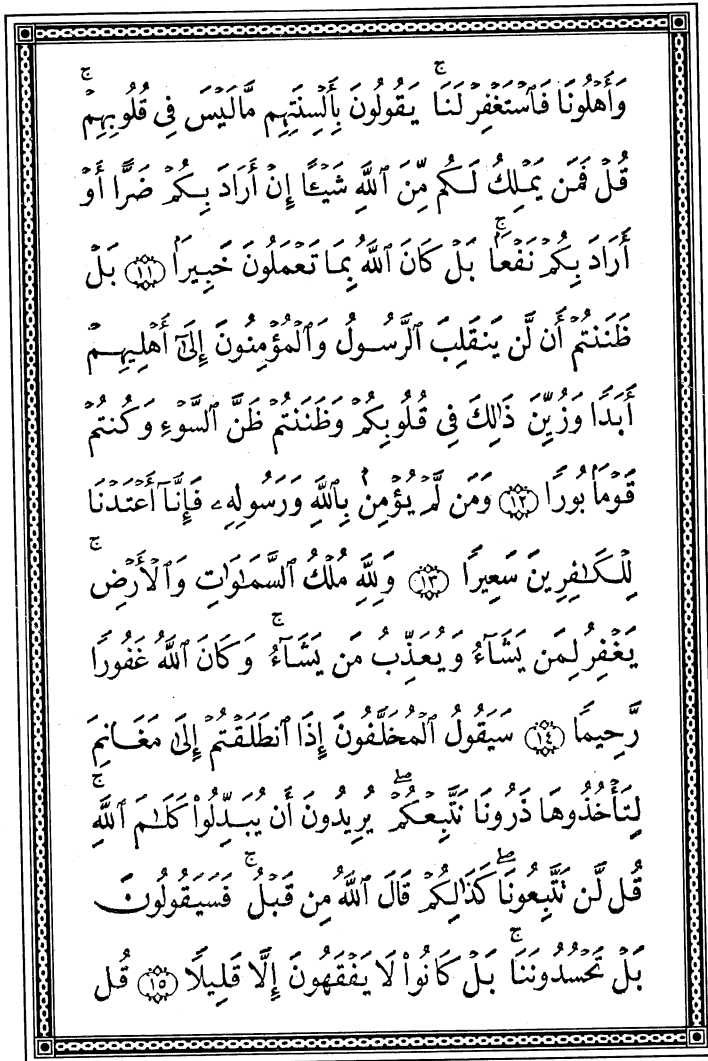 وَأَهْلُونَا فَٱسْتَغْفِرْ لَنَا ۚ يَقُولُونَ بِأَلْسِنَتِهِم مَّا لَيْسَ فِى قُلُوبِهِمْ ۚ
قُلْ فَمَن يَمْلِكُ لَكُم مِّنَ ٱللَّهِ شَيْـًٔا إِنْ أَرَادَ بِكُمْ ضَرًّا أَوْ
أَرَادَ بِكُمْ نَفْعًۢا ۚ بَلْ كَانَ ٱللَّهُ بِمَا تَعْمَلُونَ خَبِيرًۢا ﴿١١﴾ بَلْ
ظَنَنتُمْ أَن لَّن يَنقَلِبَ ٱلرَّسُولُ وَٱلْمُؤْمِنُونَ إِلَىٰٓ أَهْلِيهِمْ
أَبَدًا وَزُيِّنَ ذَٰلِكَ فِى قُلُوبِكُمْ وَظَنَنتُمْ ظَنَّ ٱلسَّوْءِ وَكُنتُمْ
قَوْمًۢا بُورًا ﴿١٢﴾ وَمَن لَّمْ يُؤْمِنۢ بِٱللَّهِ وَرَسُولِهِۦ فَإِنَّآ أَعْتَدْنَا
لِلْكَـٰفِرِينَ سَعِيرًا ﴿١٣﴾ وَلِلَّهِ مُلْكُ ٱلسَّمَـٰوَٰتِ وَٱلْأَرْضِ ۚ
يَغْفِرُ لِمَن يَشَآءُ وَيُعَذِّبُ مَن يَشَآءُ ۚ وَكَانَ ٱللَّهُ غَفُورًا
رَّحِيمًا ﴿١٤﴾ سَيَقُولُ ٱلْمُخَلَّفُونَ إِذَا ٱنطَلَقْتُمْ إِلَىٰ مَغَانِمَ
لِتَأْخُذُوهَا ذَرُونَا نَتَّبِعْكُمْ ۖ يُرِيدُونَ أَن يُبَدِّلُوا۟ كَلَـٰمَ ٱللَّهِ ۚ
قُل لَّن تَتَّبِعُونَا ۖ كَذَٰلِكُمْ قَالَ ٱللَّهُ مِن قَبْلُ ۚ فَسَيَقُولُونَ
بَلْ تَحْسُدُونَنَا ۚ بَلْ كَانُوا۟ لَا يَفْقَهُونَ إِلَّا قَلِيلًا ﴿١٥﴾ قُل